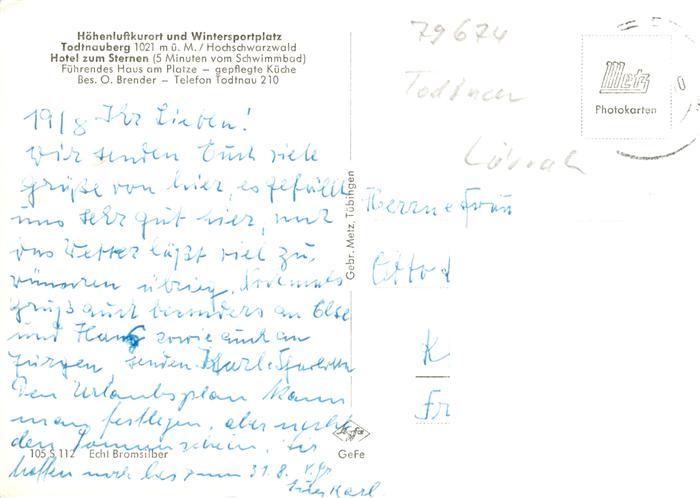 Höhenluftkurort und Wintersportplatz
Todtnauberg 1021 m ü. M. / Hochschwarzwald
Hotel zum Sternen (5 Minuten vom Schwimmbad)
Führendes Haus am Platze – gepflegte Küche
Bes. O. Brender – Telefon Todtnau 210
19/8 Ihr Lieben!
wir senden Euch viele
Grüße von hier, es gefällt
uns sehr gut hier, nur
das Wetter läßt viel zu
wünschen übrig. Nochmals
Gruß auch besonders an Else
und Hans sowie auch an
Jürgen, senden Karl
Den Urlaubsplan kann
man festlegen, aber nicht
den Sonnenschein. Wir
hoffen noch bis zum 31.8.
Karl
105 S 112 Echt Bromsilber
GeFe
Agfa
Gebr. Metz, Tübingen
79674
Todtnau
Lörrach
Metz
Photokarten
Herrn u Frau
Otto
K
Fr